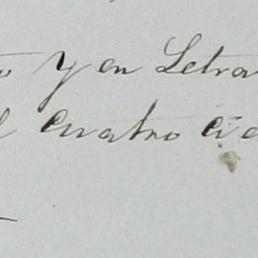 y en Letra
cuatro ci